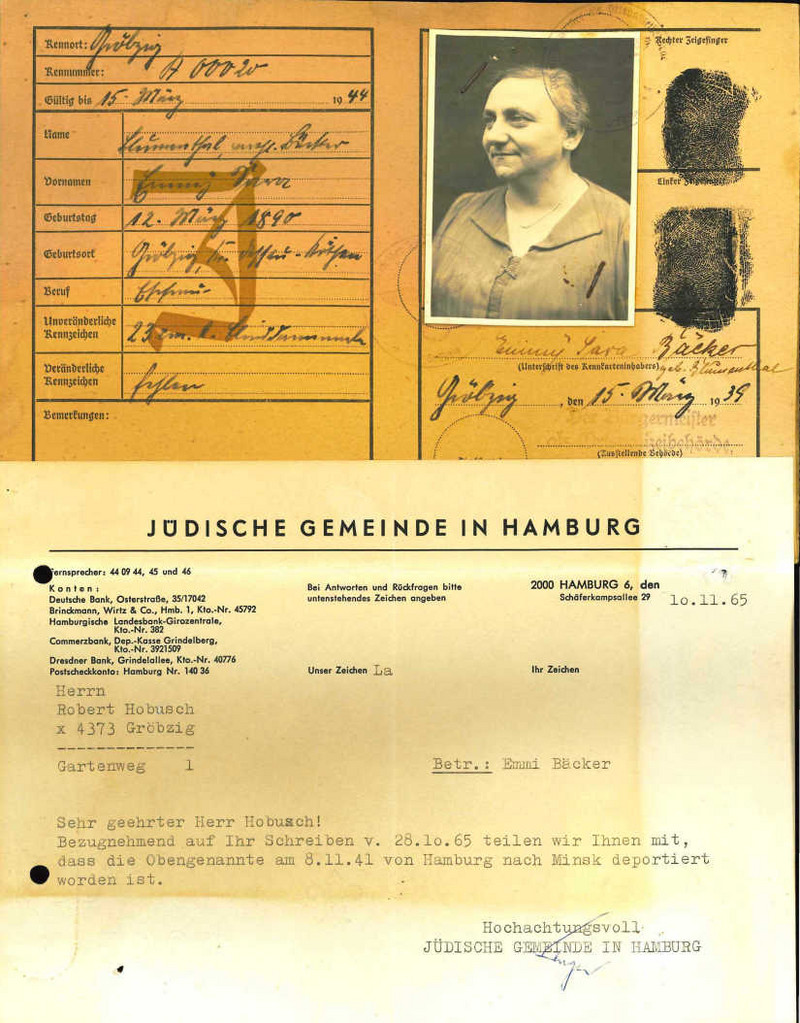 Kennort: Gröbzig
Kennummer: A 00020
Gültig bis 15. März 1944
Name
Blumenthal, verh. Bäcker
Vornamen
Emmy Sara
Geburtstag
12. März 1890
Geburtsort
Gröbzig, Kr. Dessau-Köthen
Beruf
Ehefrau
Unveränderliche
Kennzeichen
23 cm. l.
Veränderliche
Kennzeichen
fehlen
Bemerkungen:
J
Rechter Zeigefinger
Linker Zeigefinger
Emmy Sara Bäcker
(Unterschrift des Kennkarteninhabers) geb. Blumenthal
Gröbzig, den 15. März 1939
Der Bürgermeister
als Ortspolizeibehörde.
(Ausstellende Behörde)
JÜDISCHE GEMEINDE IN HAMBURG
Fernsprecher: 44 09 44, 45 und 46
Konten:
Deutsche Bank, Osterstraße, 35/17042
Brinckmann, Wirtz & Co., Hmb. 1, Kto.-Nr. 45792
Hamburgische Landesbank-Girozentrale,
Kto.-Nr. 382
Commerzbank, Dep.-Kasse Grindelberg,
Kto.-Nr. 3921509
Dresdner Bank, Grindelallee, Kto.-Nr. 40776
Postscheckkonto: Hamburg Nr. 140 36
Bei Antworten und Rückfragen bitte
untenstehendes Zeichen angeben
2000 HAMBURG 6, den
Schäferkampsallee 29 10.11.65
Unser Zeichen La
Ihr Zeichen
Herrn
Robert Hobusch
x 4373 Gröbzig
Gartenweg 1
Betr.: Emmi Bäcker
Sehr geehrter Herr Hobusch!
Bezugnehmend auf Ihr Schreiben v. 28.10.65 teilen wir Ihnen mit,
dass die Obengenannte am 8.11.41 von Hamburg nach Minsk deportiert
worden ist.
Hochachtungsvoll
JÜDISCHE GEMEINDE IN HAMBURG